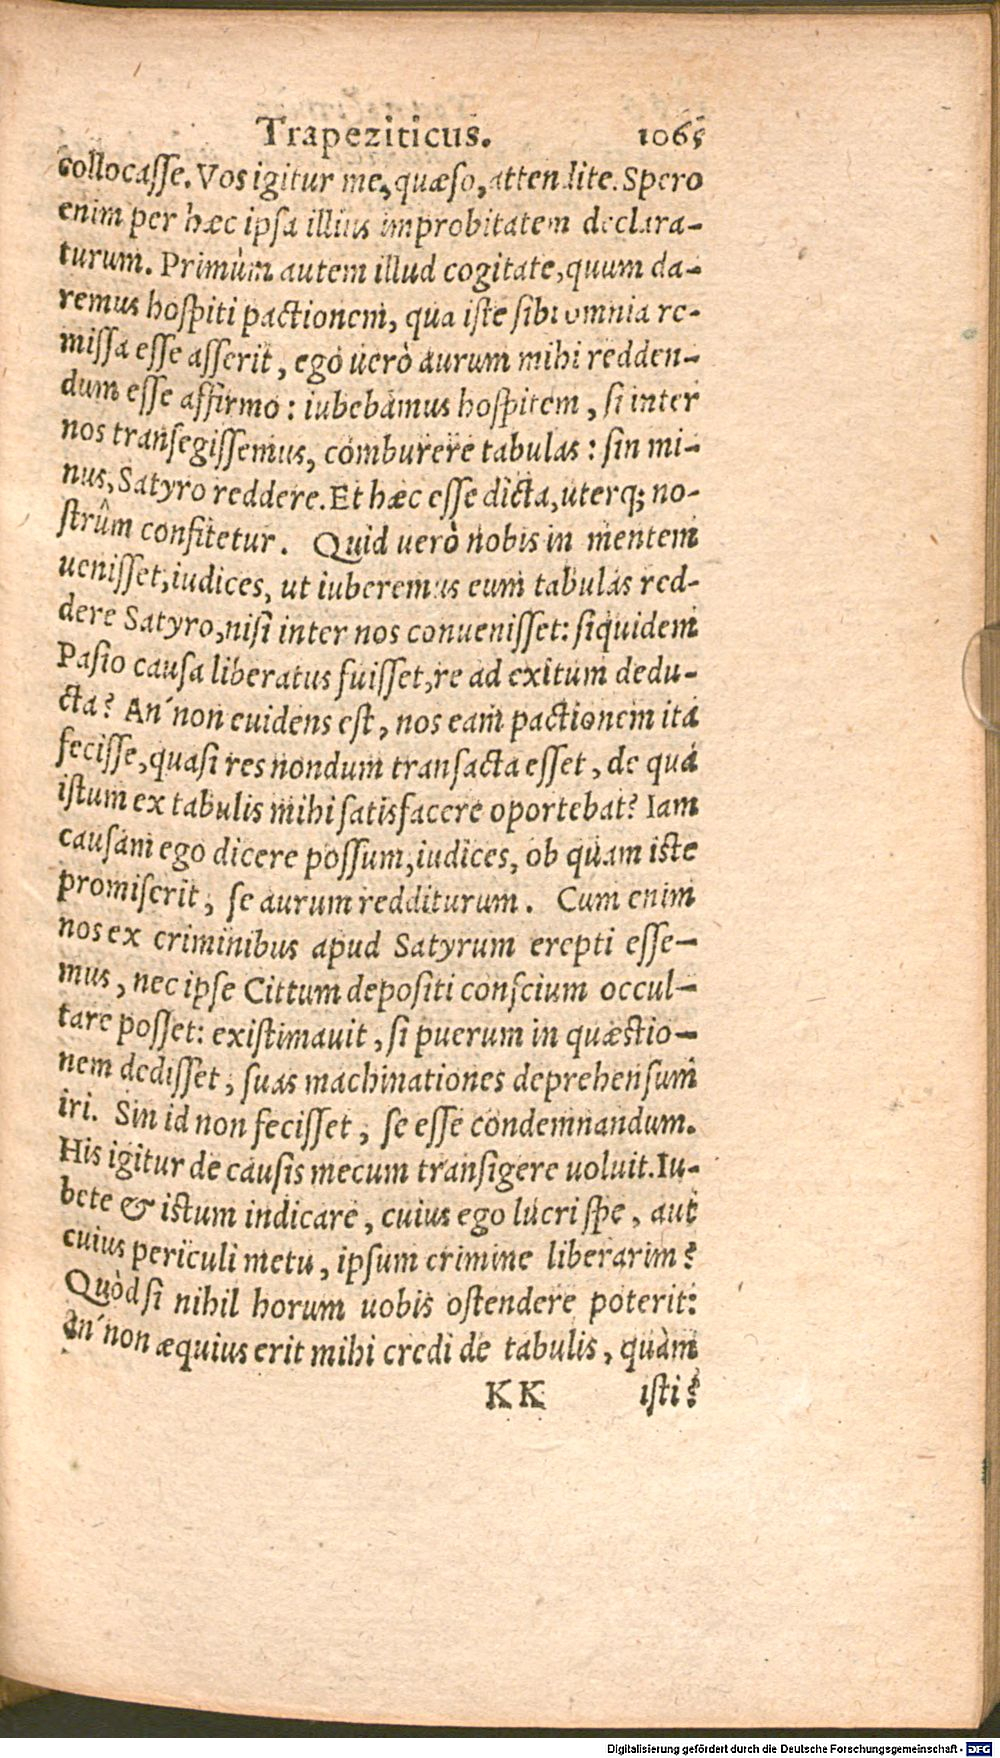 Trapeziticus. 1065
collocasse. Vos igitur me, quæso, attendite. Spero
enim per hæc ipsa illius improbitatem declara-
turum. Primùm autem illud cogitate, quum da-
remus hospiti pactionem, qua iste sibi omnia re-
missa esse asserit, ego uerò aurum mihi redden-
dum esse affirmo: iubebamus hospitem, si inter
nos transegissemus, comburere tabulas: sin mi-
nus, Satyro reddere. Et hæc esse dicta, uterq; no-
strûm confitetur. Quid uerò nobis in mentem
uenisset, iudices, ut iuberemus eum tabulas red-
dere Satyro, nisi inter nos conuenisset: siquidem
Pasio causa liberatus fuisset, re ad exitum dedu-
cta? An´non euidens est, nos eam pactionem ita
fecisse, quasi res nondum transacta esset, de qua
istum ex tabulis mihi satisfacere oportebat? Iam
causam ego dicere possum, iudices, ob quam iste
promiserit, se aurum redditurum. Cum enim
nos ex criminibus apud Satyrum erepti esse-
mus, nec ipse Cittum depositi conscium occul-
tare posset: existimauit, si puerum in quæstio-
nem dedisset, suas machinationes deprehensum
iri. Sin id non fecisset, se esse condemnandum.
His igitur de causis mecum transigere uoluit. Iu-
bete & istum indicare, cuius ego lucri spe, aut
cuius periculi metu, ipsum crimine liberarim?
Quòd si nihil horum uobis ostendere poterit:
an´non æquius erit mihi credi de tabulis, quàm
KK isti?
Digitalisierung gefördert durch die Deutsche Forschungsgemeinschaft - DFG